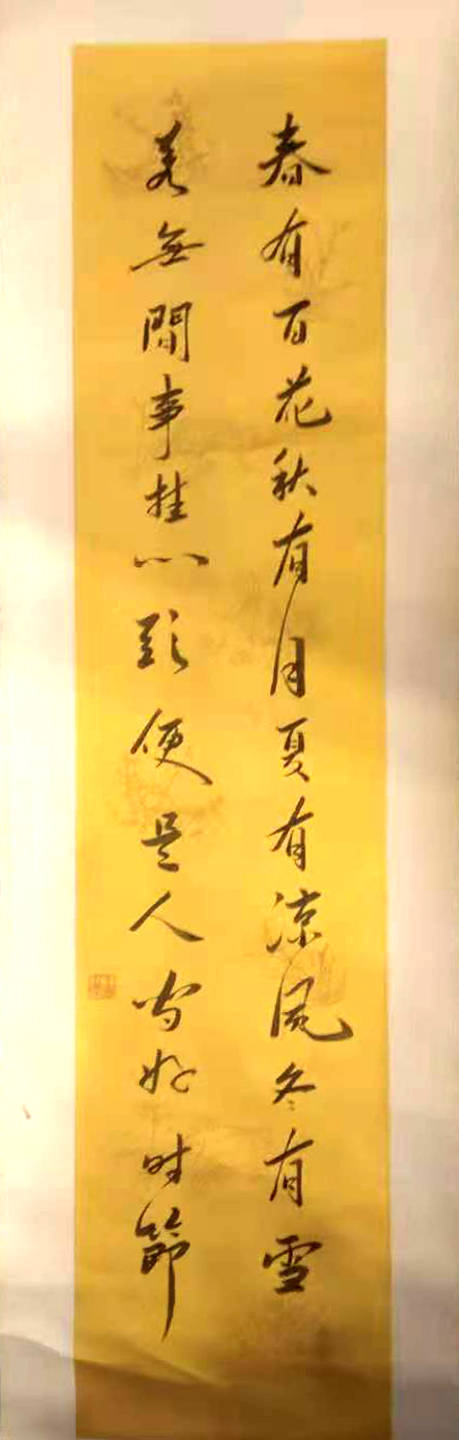 春有百花秋有月夏有凉风冬有雪
若無閒事挂心头便是人间好时節